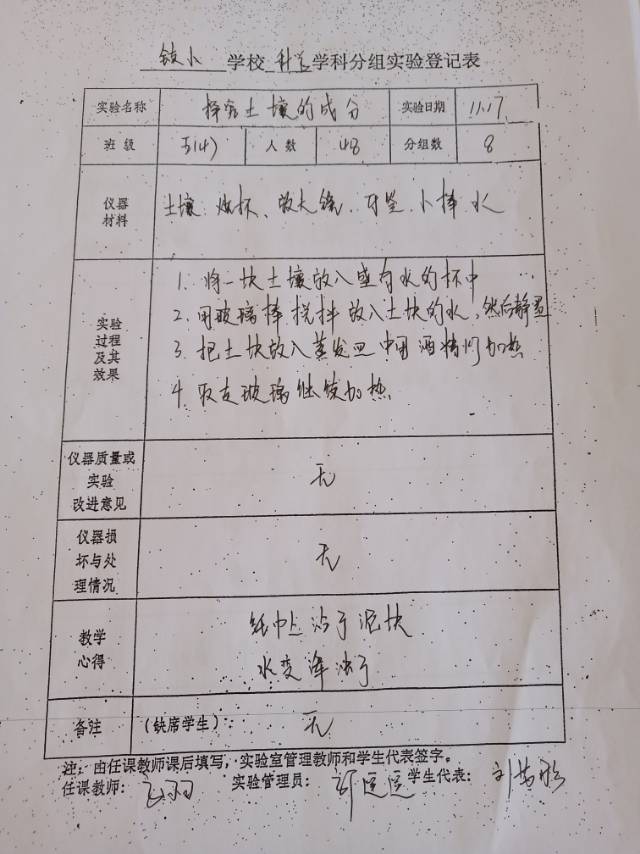 铰小 学校 科学 学科分组实验登记表
实验名称 探究土壤的成分 实验日期 11.17
班级 五(4) 人数 48 分组数 8
仪器材料 土壤、烧杯、放大镜、牙签、小棒 水
实验过程及其效果
1. 将一块土壤放入盛有水的杯中
2. 用玻璃棒搅拌放入土块的水,然后静置
3. 把土块放入蒸发皿中用酒精灯加热
4. 取走玻璃继续加热
仪器质量或实验改进意见 无
仪器损坏与处理情况 无
教学心得 纸巾上沾于泥块
水变浑浊了
备注 (缺席学生): 无
注:由任课教师课后填写,实验室管理教师和学生代表签字。
任课教师: 实验管理员: 学生代表: